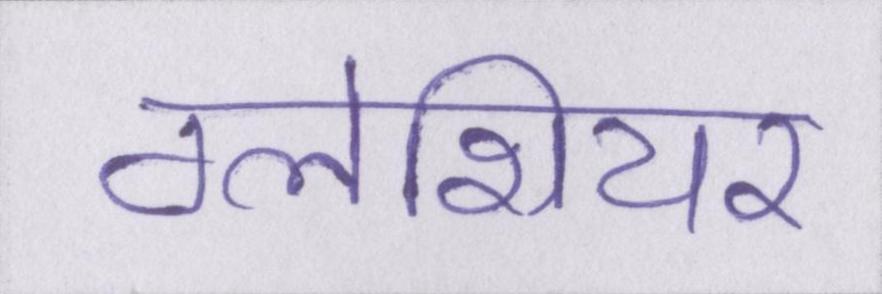 ग्लेशियर